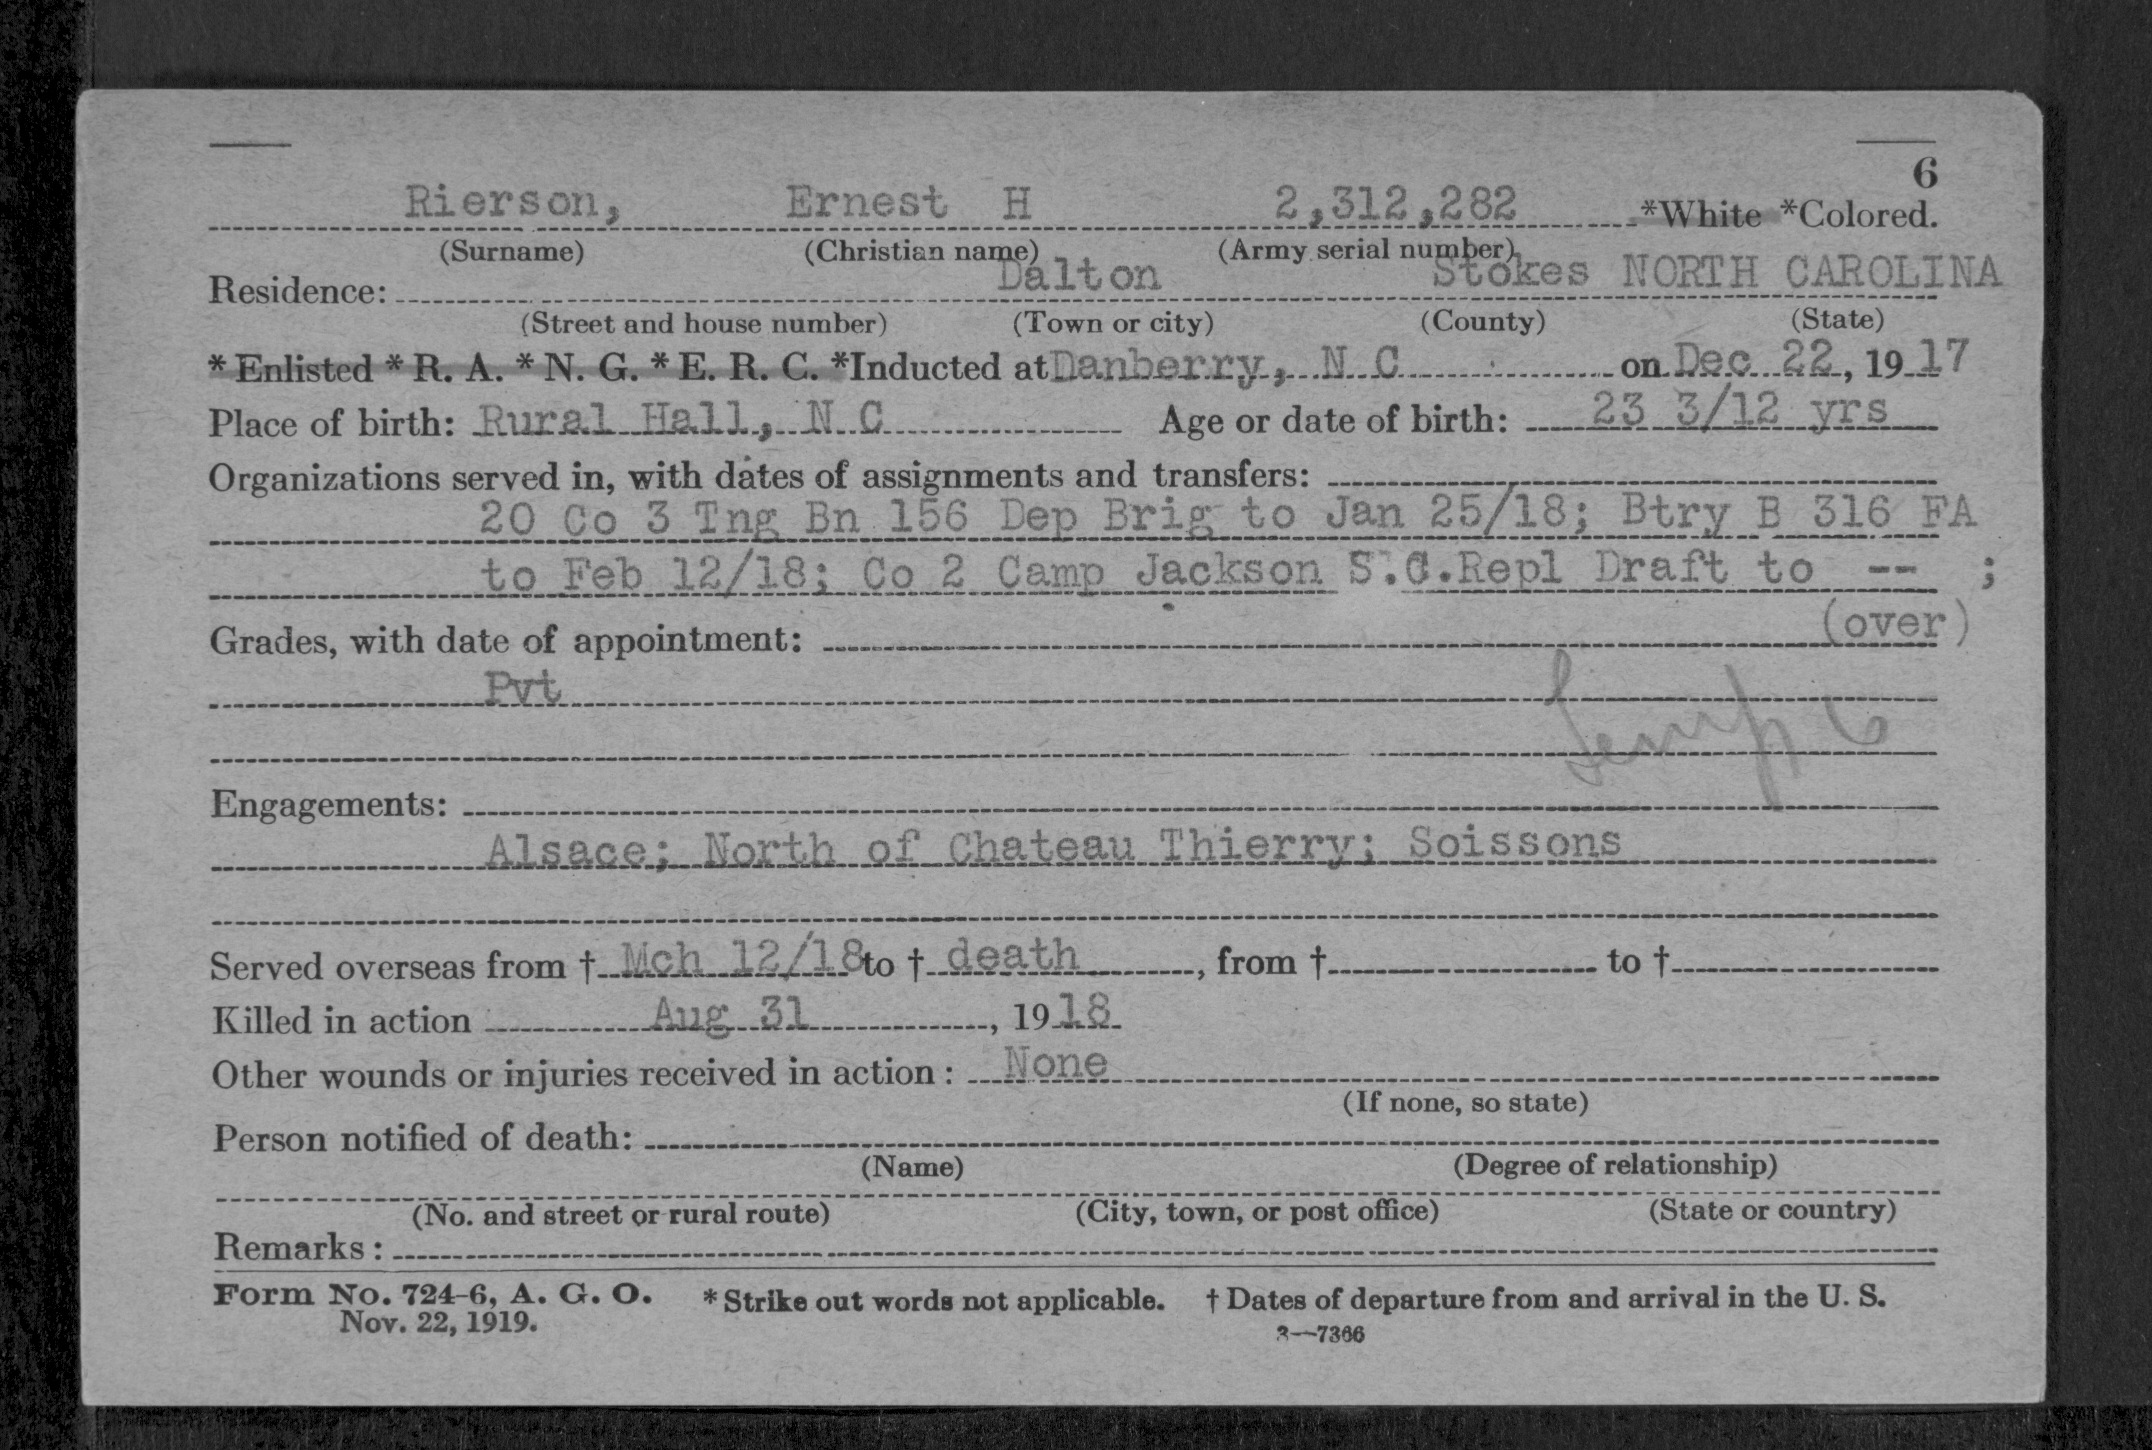 6
Rierson, Ernest H 2,312,282 *White *Colored.
(Surname) (Christian name) (Army serial number)
Residence: Dalton Stokes NORTH CAROLINA
(Street and house number) (Town or city) (County) (State)
*Enlisted *R. A. *N. G. *E. R. C. *Inducted at Danberry, N C on Dec 22, 1917
Place of birth: Rural Hall, N C Age or date of birth: 23 3/12 yrs
Organizations served in, with dates of assignments and transfers:
20 Co 3 Tng Bn 156 Dep Brig to Jan 25/18; Btry B 316 FA
to Feb 12/18; Co 2 Camp Jackson S.C.Repl Draft to -- ;
(over)
Grades, with date of appointment:
Pvt
Engagements:
Alsace; North of Chateau Thierry; Soissons
Served overseas from † Mch 12/18 to † death, from † to †
Killed in action Aug 31, 1918
Other wounds or injuries received in action: None
(If none, so state)
Person notified of death:
(Name) (Degree of relationship)
(No. and street or rural route) (City, town, or post office) (State or country)
Remarks:
Form No. 724-6, A. G. O. *Strike out words not applicable. † Dates of departure from and arrival in the U. S.
Nov. 22, 1919. 3—7366